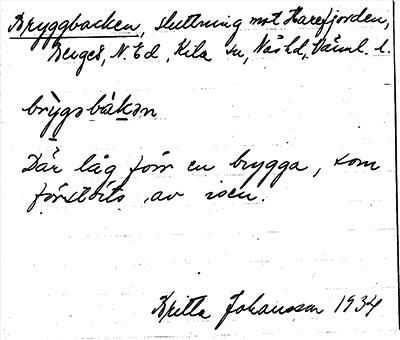 Bryggbacken, sluttning mot Harefjorden,
Berget, N. Ed, Kila sn, Näs hd, Värml. l.
brỳgəbàkən
Där låg förr en brygga, som
förstöits av isen.
Britta Johansson 1934